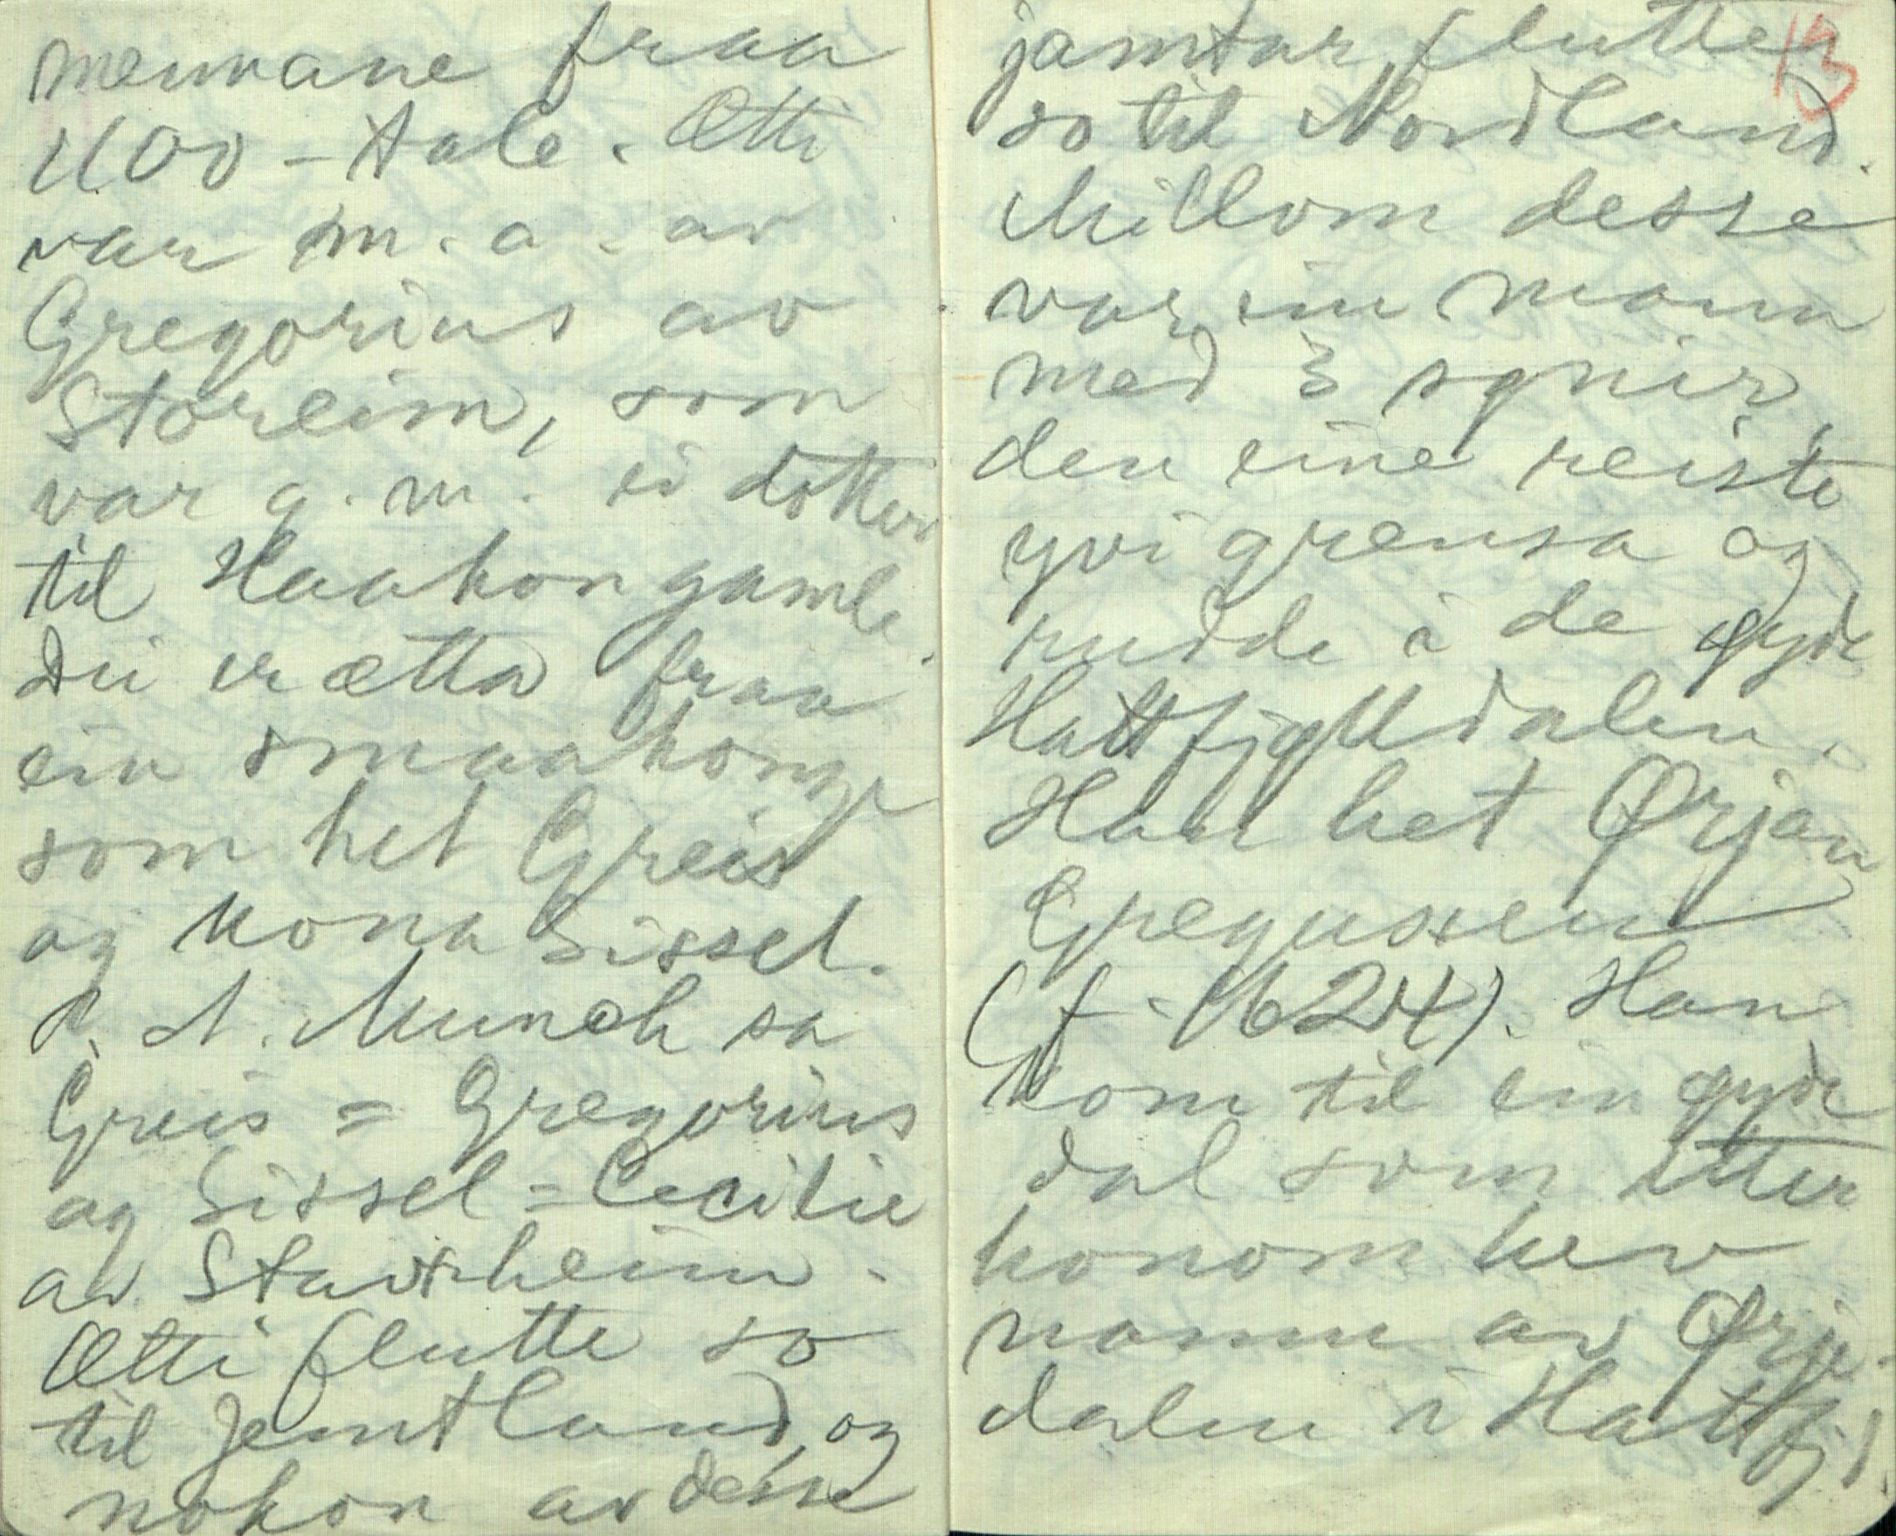 mennane fraa
1100-tale. Ætti
var m.a. av
Gregorius av
Storeim, som
var g.m. ei dotter
til Haakon gamle.
Dei er ætta fraa
ein smaakonge
som het Greis
og kona Sissel.
P. A. Munch sa
Greis = Gregorius
og Sissel = Cecilie
av Starheim.
Ætti flutte so
til Jemtland, og
nokon av desse
13
jamtar flutte
so til Nordland.
Millom desse
var ein mann
med 3 synir,
den eine reiste
yvi grensa og
rudde i de øyde
Hattfjelldalen.
Han het Ørjan
Gregusen
(f. 1624). Han
kom til ein øyde
dal som etter
honom hev
namn av Ørje-
dalen i Hattfj.